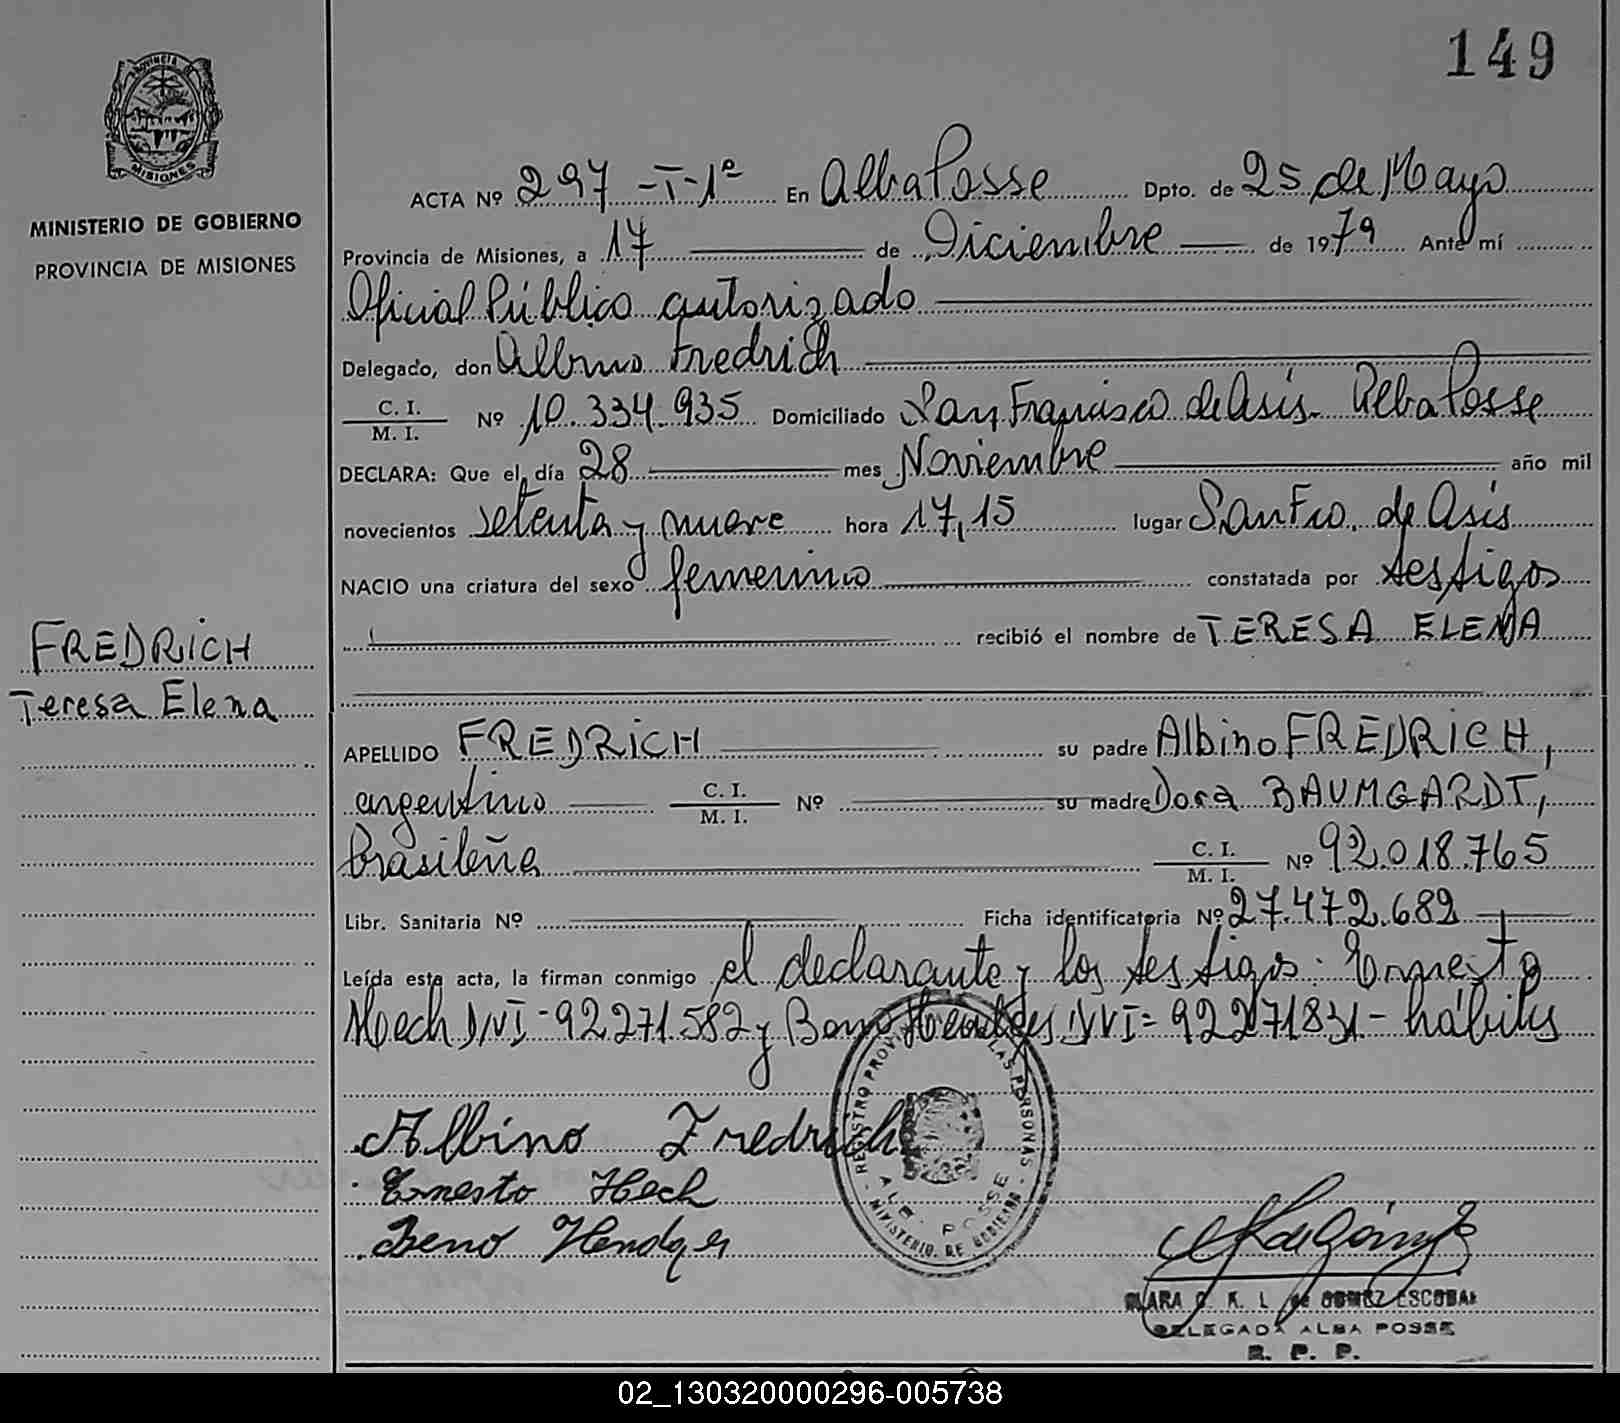 149
PROVINCIA DE
MISIONES
MINISTERIO DE GOBIERNO
PROVINCIA DE MISIONES
ACTA Nº 297 -T-1º En Alba Posse Dpto. de 25 de Mayo
Provincia de Misiones, a 17 de Diciembre de 1979 Ante mí
Oficial Público autorizado
Delegado, don Albino Fredrich
C. I.
M. I. Nº 10.334.935 Domiciliado San Francisco de Asís. Alba Posse
DECLARA: Que el día 28 mes Noviembre año mil
novecientos setenta y nueve hora 17,15 lugar San Fco. de Asís
NACIO una criatura del sexo femenino constatada por testigos
recibió el nombre de TERESA ELENA
FREDRICH
Teresa Elena
APELLIDO FREDRICH su padre Albino FREDRICH,
argentino C. I. M. I. Nº su madre Dora BAUMGARDT,
brasileña C. I. M. I. Nº 92.018.765
Libr. Sanitaria Nº Ficha identificatoria Nº 27.472.682
Leída esta acta, la firman conmigo el declarante y los testigos: Ernesto
Hech DNI-92271582 y Beno DNI= 92271831- hábiles
REGISTRO PROVINCIAL LAS PERSONAS
ALBA POSSE
MINISTERIO DE GOBIERNO
Albino Fredrich
Ernesto Hech
Beno
CLARA DE GOMEZ ESCOBAR
DELEGADA ALBA POSSE
R. P. P.
02_130320000296-005738